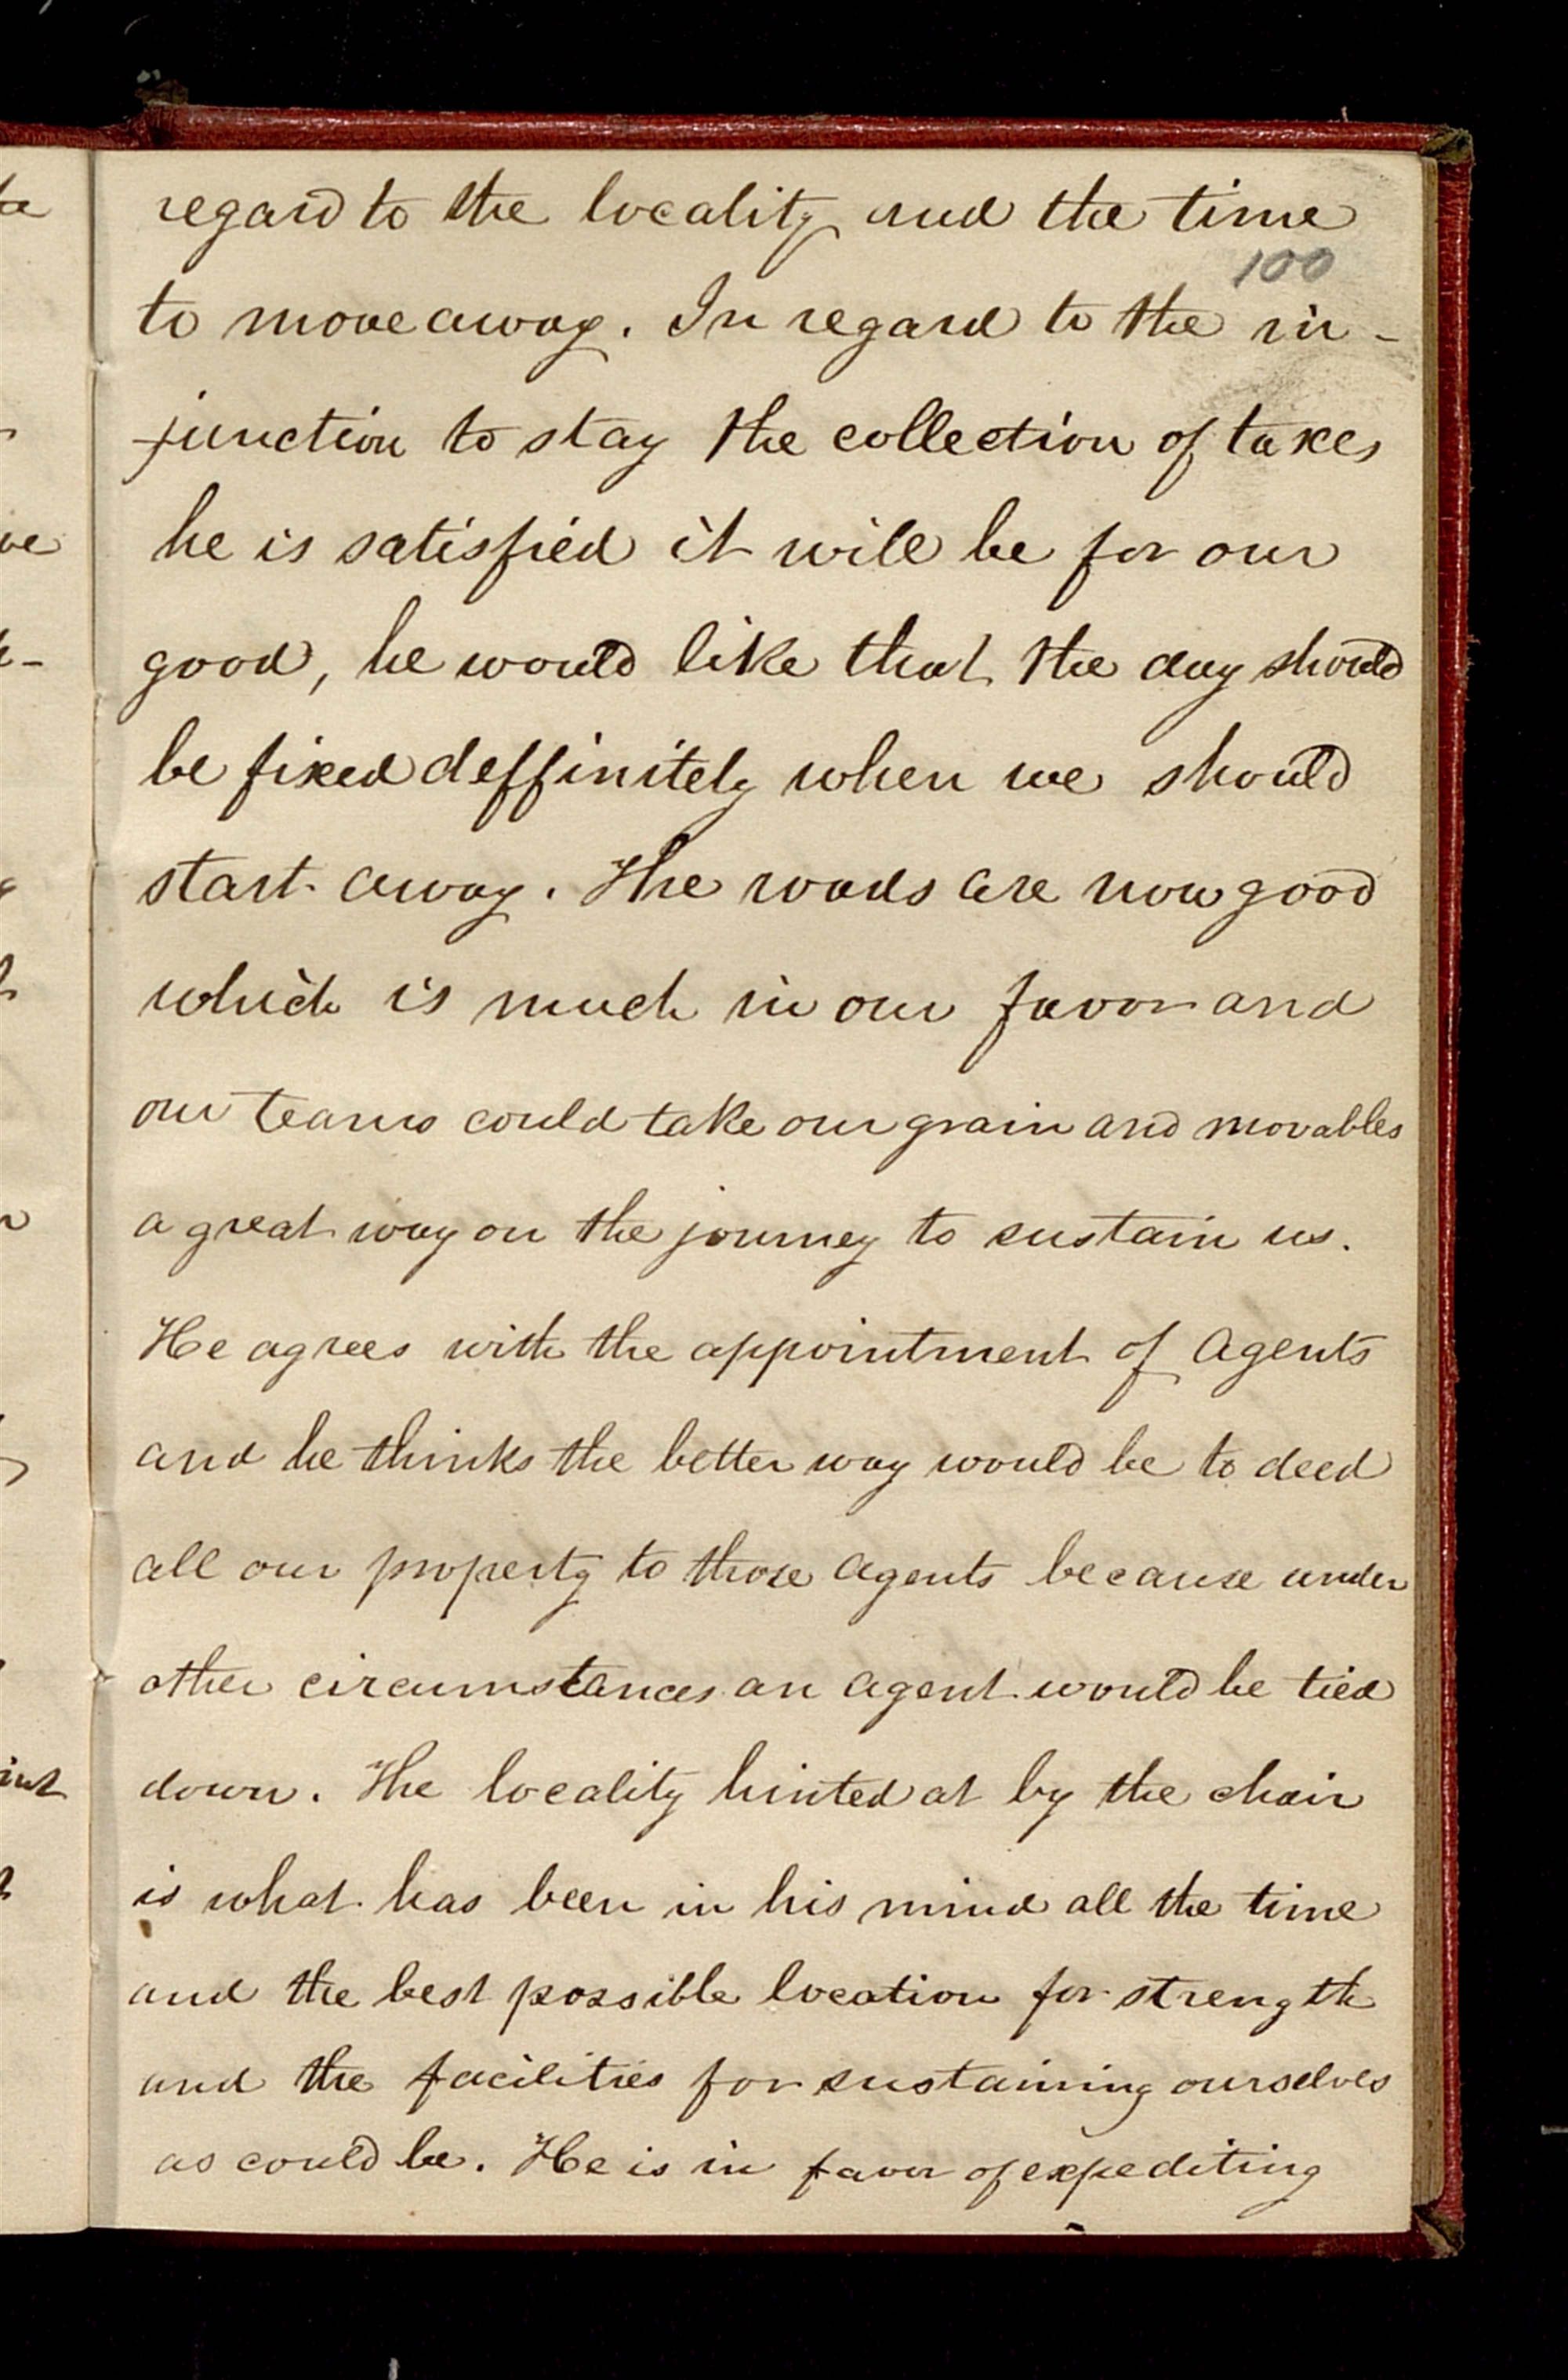 regard to the locality and the time
100
to move away. In regard to the in-
junction to stay the collection of taxes
he is satisfied it will be for our
good, he would like that the day should
be fixed deffinitely when we should
start away. The roads are now good
which is much in our favor and
our teams could take our grain and movables
a great way on the journey to sustain us.
He agrees with the appointment of Agents
and he thinks the better way would be to deed
all our property to those Agents because under
other circumstances an Agent would be tied
down. The locality hinted at by the chair
is what has been in his mind all the time
and the best possible location for strength
and the facilities for sustaining ourselves
as could be. He is in favor of expediting